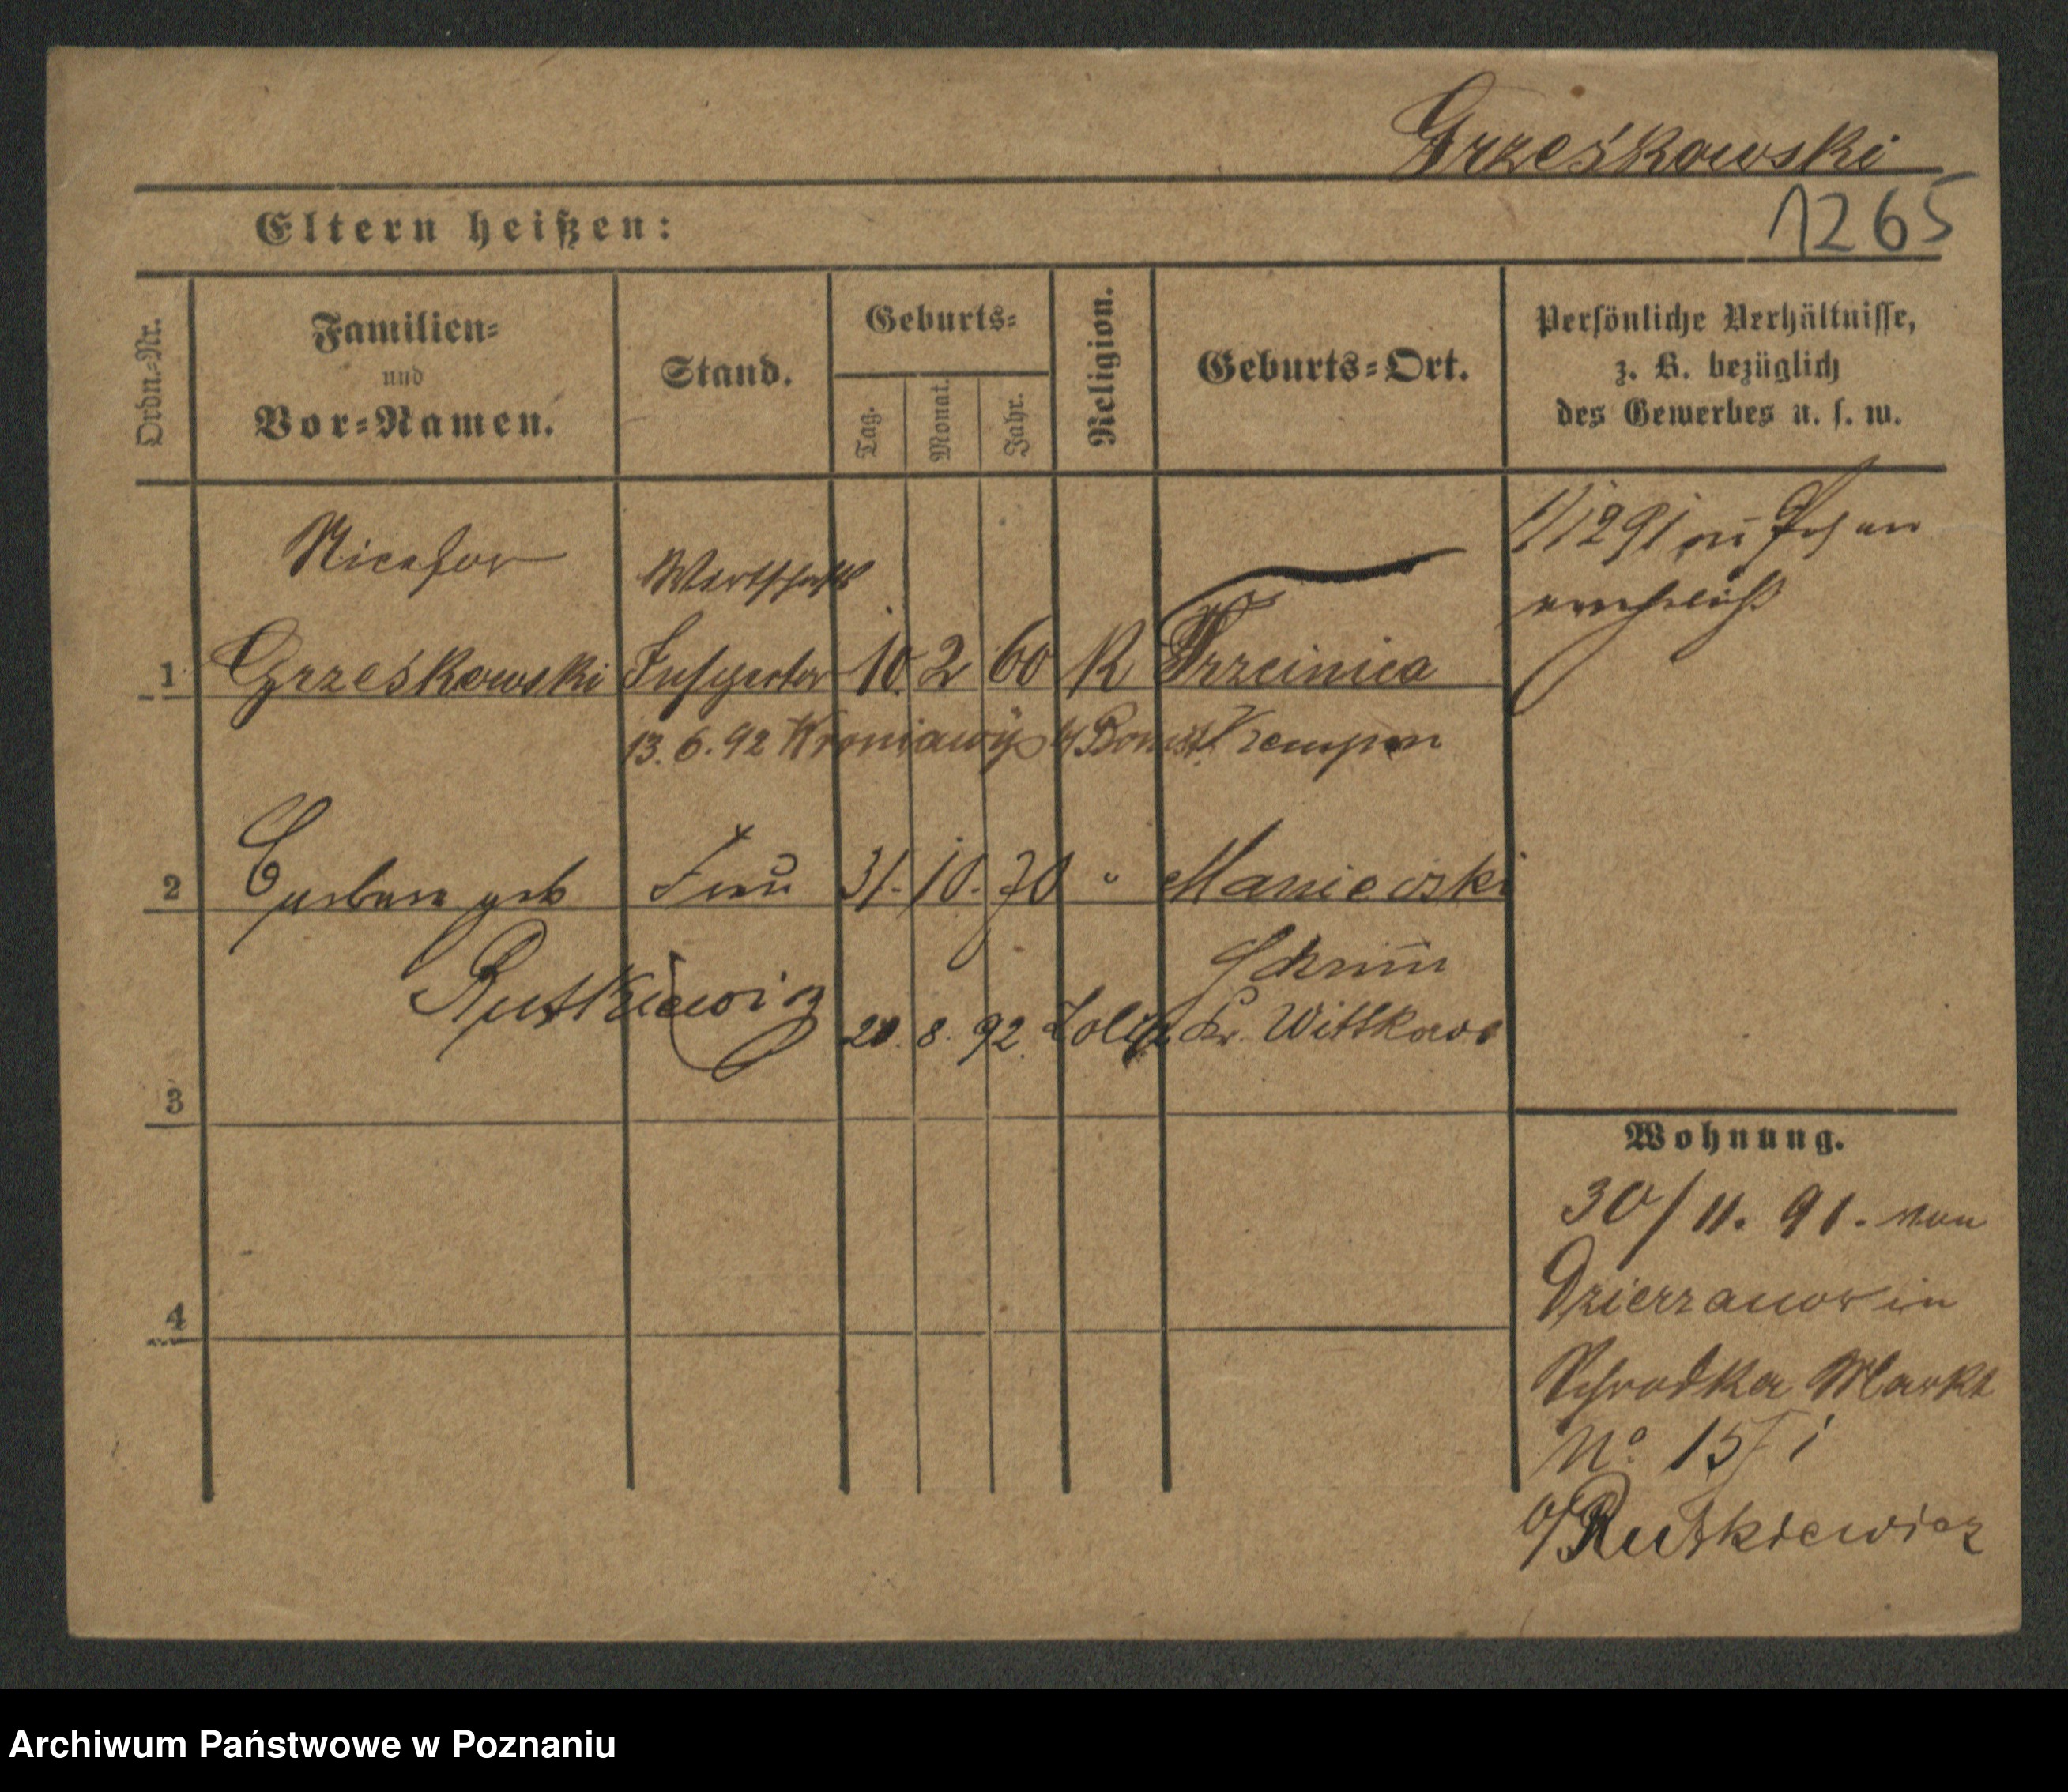 Grześkowski
1265
Eltern heißen:
Ordn.-Nr.
Familien-
und
Vor-Namen.
Stand.
Geburts-
Tag.
Monat.
Jahr.
Religion.
Geburts-Ort.
Persönliche Verhältnisse,
z. B. bezüglich
des Gewerbes u. s. w.
Nicefor
Wirtschafts
1/12 91 in Posen
verehelicht
1 Grześkowski Inspector 10. 2 60 K Trzcinica
13. 6. 92 Kroniawy b/ Bomst. Kempen
2 Barbara geb Frau 31. 10. 70 " Manieczki
Rutkiewicz
Schrimm
20. 8. 92. Kr. Wittkowo
3
4
Wohnung.
30/11. 91. von
Dzierzanow in
Schrodka Markt
No 15 I
b/Rutkiewicz
Archiwum Państwowe w Poznaniu